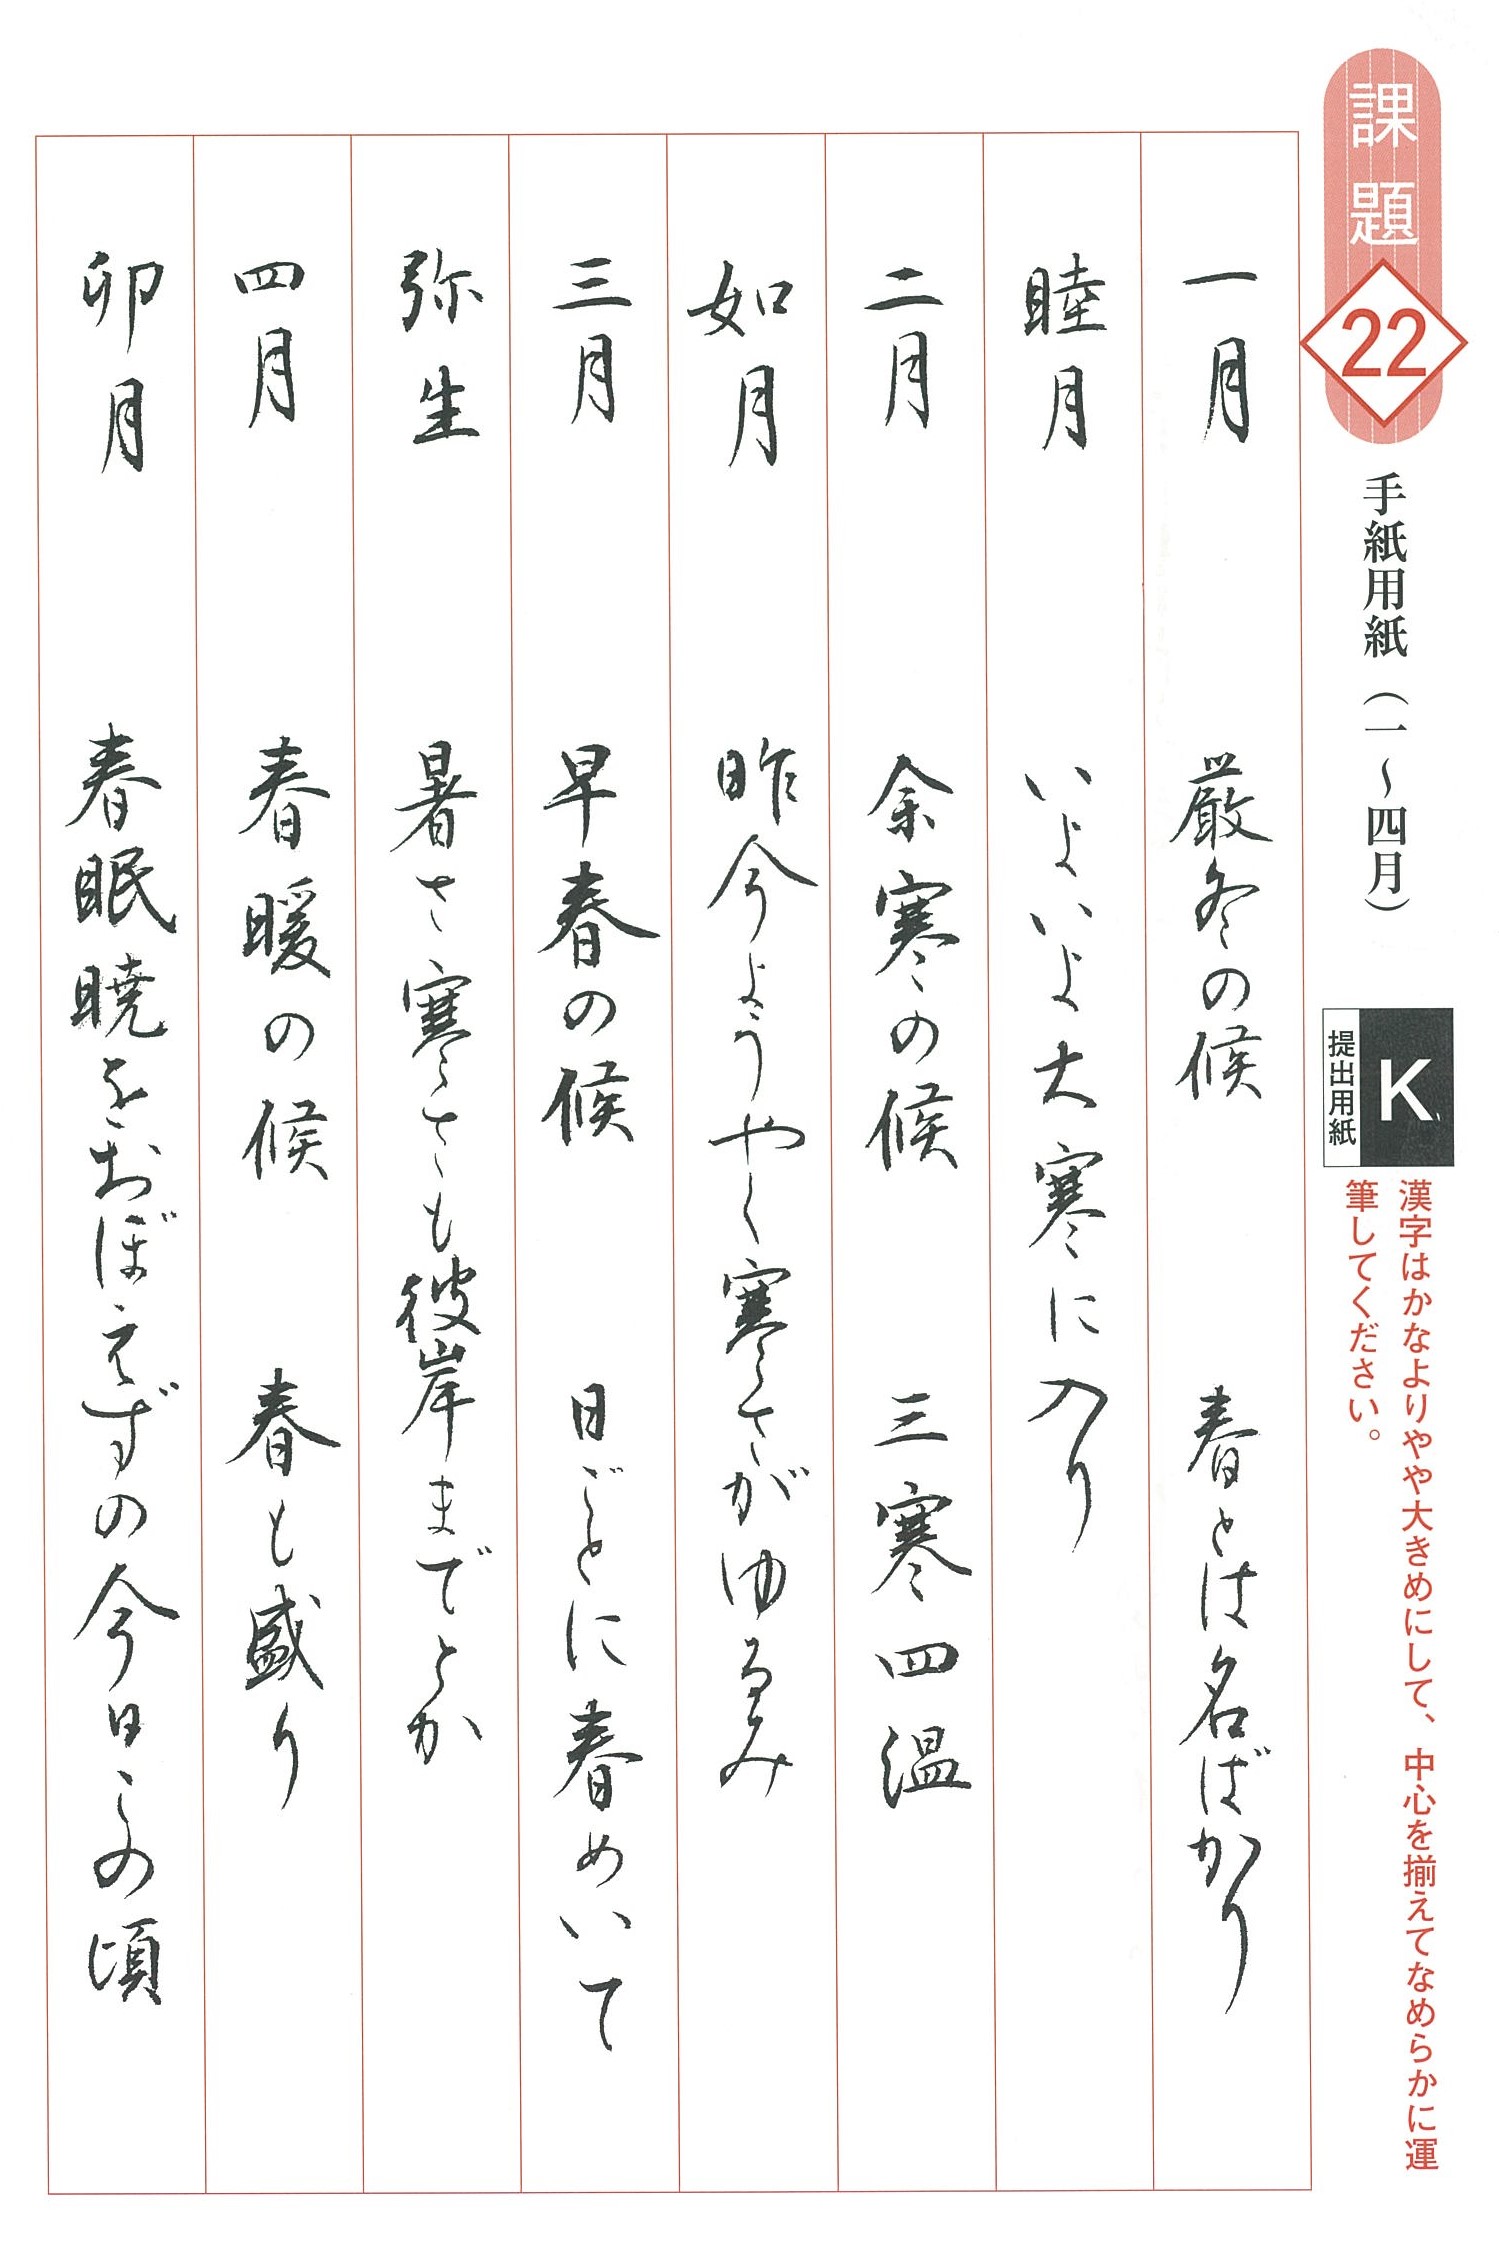 課題22
手紙用紙（一～四月）
K
提出用紙
漢字はかなよりやや大きめにして、中心を揃えてなめらかに運
筆してください。
一月 厳冬の候 春とは名ばかり
睦月 いよいよ大寒に入り
二月 余寒の候 三寒四温
如月 昨今ようやく寒さがゆるみ
三月 早春の候 日ごとに春めいて
弥生 暑さ寒さも彼岸までとか
四月 春暖の候 春も盛り
卯月 春眠暁をおぼえずの今日この頃